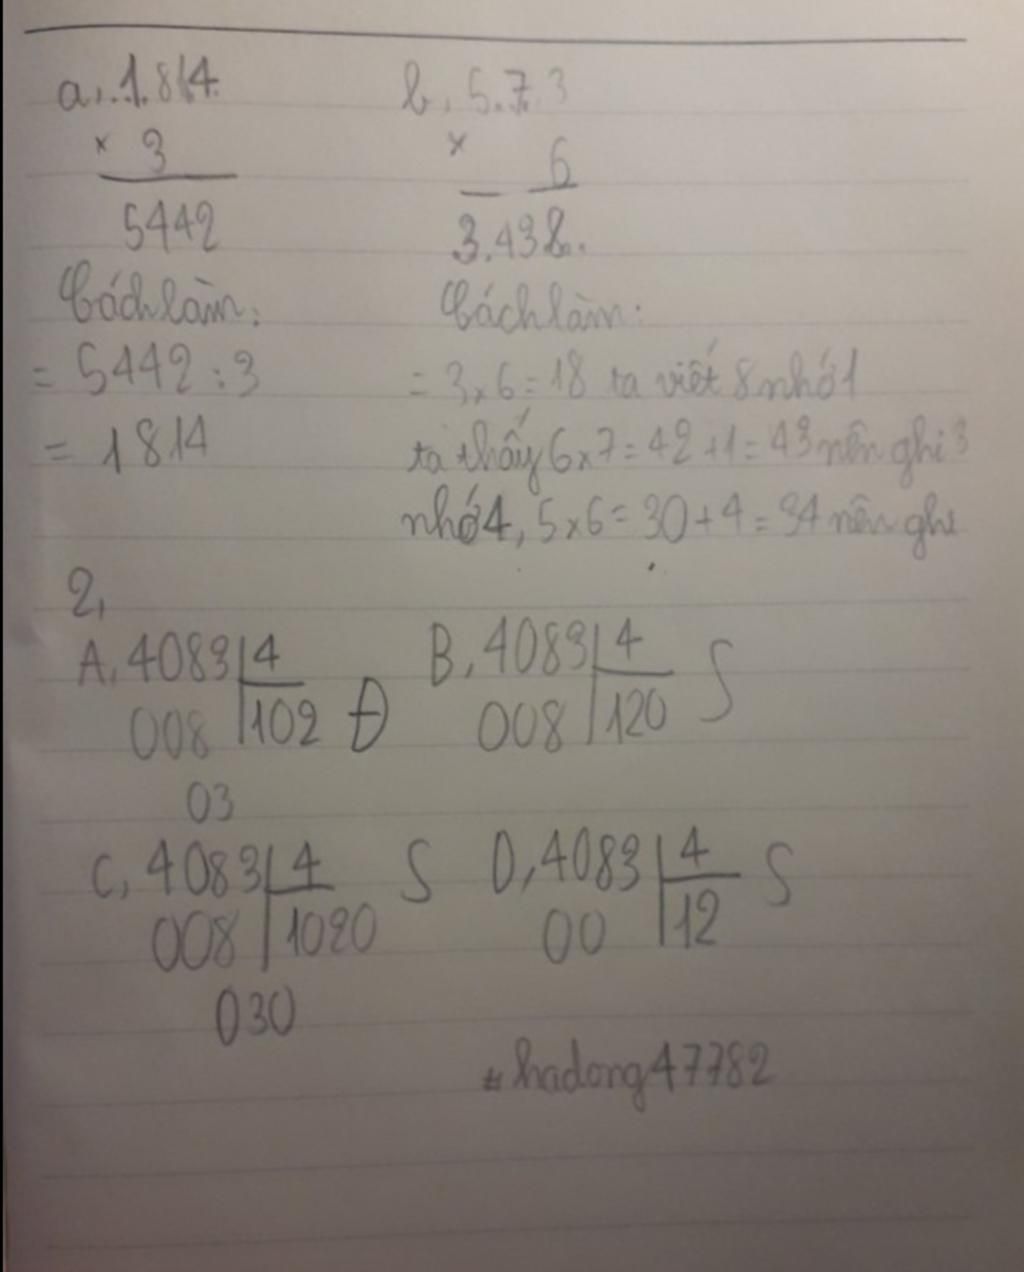 a, .1.814. b, 5.7.3
× 3 × 6
5442 3.438.
Cách làm: Cách làm:
= 5442 : 3 = 3×6=18 ta viết 8 nhớ 1
= 1814 ta thấy 6×7=42+1=43 nên ghi 3
nhớ 4, 5×6=30+4=34 nên ghi
2,
A, 4083 4 B, 4083 4 S
008 102 Đ 008 120
03
C, 4083 4 S D, 4083 4 S
008 1020 00 12
030
#hadong47782